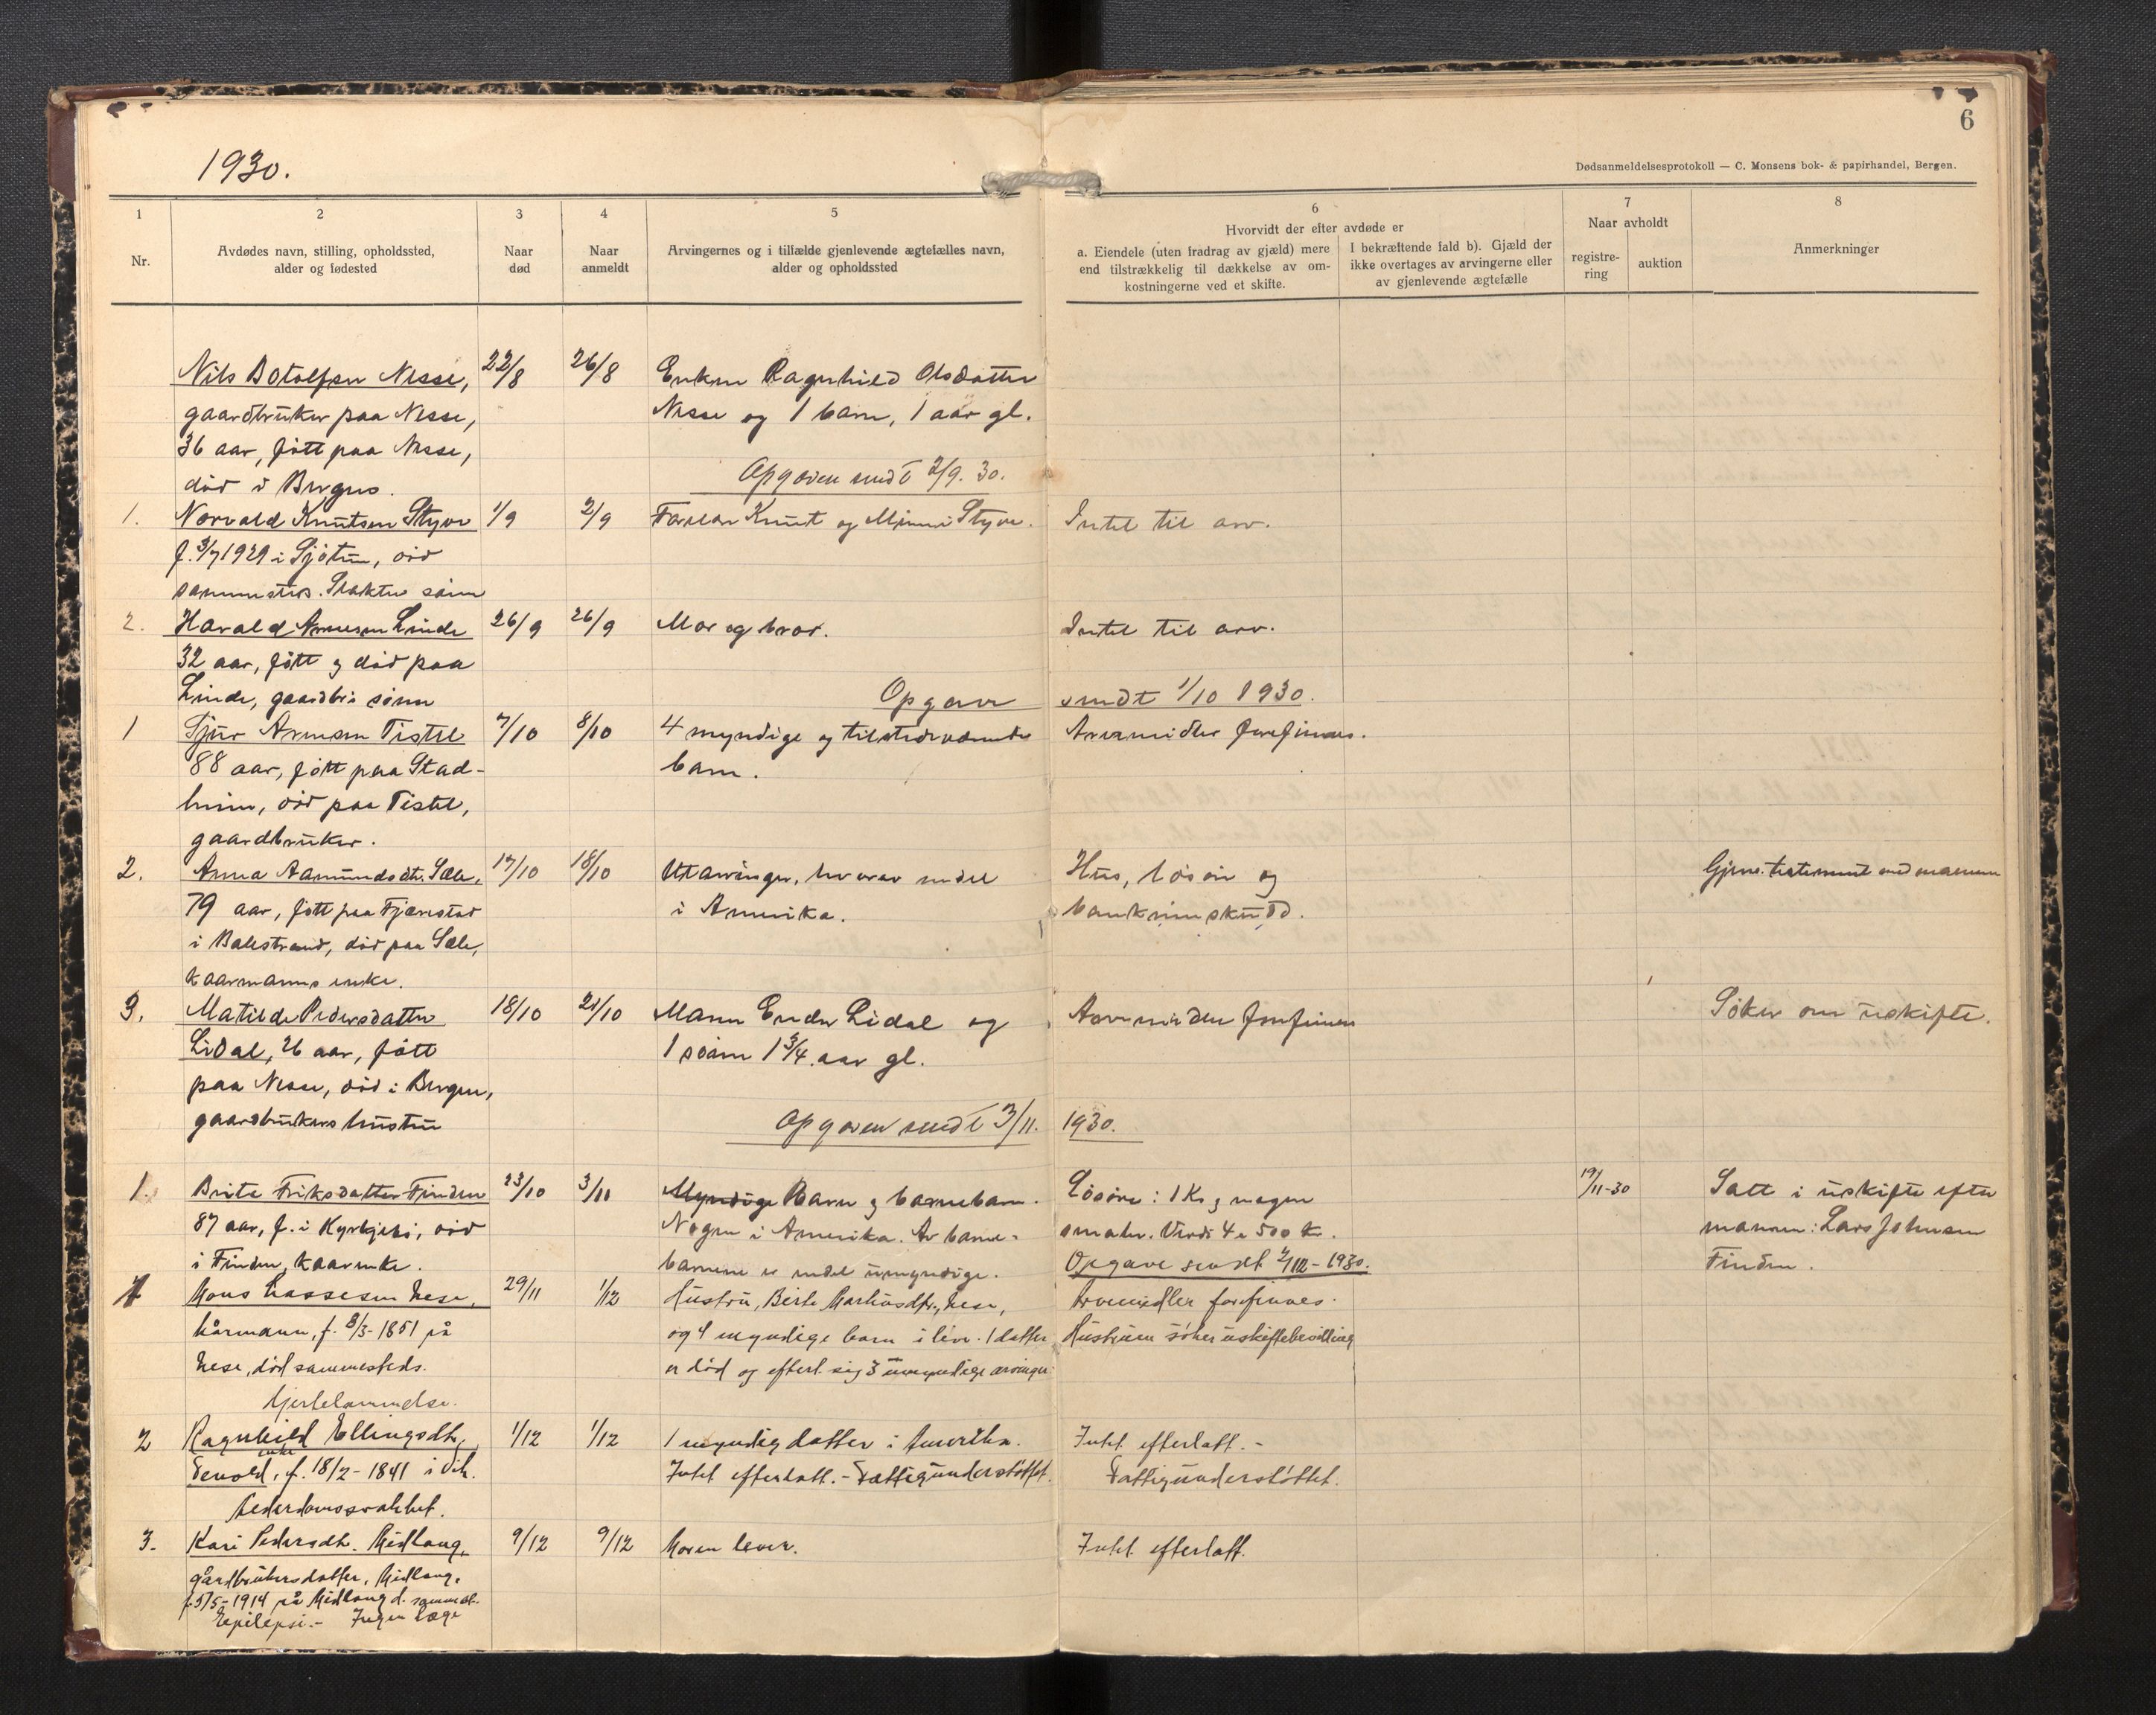 6
1930.
Dødsanmeldelsesprotokoll — C. Monsens bok- & papirhandel, Bergen.
1 2 3 4 5 6 7 8
Nr.
Avdødes navn, stilling, opholdssted,
alder og fødested
Naar
død
Naar
anmeldt
Arvingernes og i tilfælde gjenlevende ægtefælles navn,
alder og opholdssted
Hvorvidt der efter avdøde er
a. Eiendele (uten fradrag av gjæld) mere
end tilstrækkelig til dækkelse av om-
kostningerne ved et skifte.
I bekræftende fald b). Gjæld der
ikke overtages av arvingerne eller
av gjenlevende ægtefælle
Naar avholdt
registre-
ring
auktion
Anmerkninger
Nils Botolfsen Nesse, 22/8 26/8 Enken Ragnhild Olsdatter
gaardbruker paa Nesse, Nesse og 1 barn, 1 aar gl.
36 aar, født paa Nesse,
død i Bergen. Opgaven sendt 2/9. 30.
1. Norvald Knutsen Styve 1/9 2/9 Knut og Styve. Intet til arv.
f. 3/7 1929 i Sjøtun, død
sammesteds. søn
2. Harald Arnesen Linde 26/9 26/9 Mor og bror. Intet til arv.
32 aar, født og død paa
Linde, gaardbr. sønn Opgave sendt 1/10 1930.
1 Sjur Arnesen Tistel 7/10 8/10 4 myndige og tilstedeværende Arvemidler forefinnes.
88 aar, født paa Stad- barn.
heim, død paa Tistel,
gaardbruker.
2. Anna Aamundsdtr. Sæle, 17/10 18/10 Utarvinger, hvorav endel Hus, løsøre og Gjens. testement med mannen
79 aar, født paa Fjærestad i Amerika. bankinnskudd.
i Balestrand, død paa Sæle,
kaarmanns enke.
3. Matilde Pedersdatter 18/10 21/10 Mann Endre Lidal og Arvemidler forefinnes Søker om uskifte.
Lidal, 26 aar, født 1 sønn 1 3/4 aar gl.
paa Nesse, død i Bergen,
gaardbrukers hustru Opgaven sendt 3/11. 1930.
1. Brita Eriksdatter Finden 23/10 3/11 Myndige Barn og barnebarn. Løsøre: 1 Ku og nogen 19/11-30 Satt i uskifte efter
87 aar, f. i Kyrkjebø, død Nogen i Amerika. Av barne- smaler. Verdi 4 a 500 kr. mannen: Lars Johnsen
i Finden, kaarenke. barnene er endel umyndige. Opgave sendt 4/12 - 1930. Finden.
1 Mons Lassesen Nese, 29/11 1/12 Hustru, Berte Nese, Arvemidler forefinnes.
kårmann, f. 8/3-1851 på og 4 myndige barn i live. 1 datter Hustruen søker uskiftebevilling
Nese, død sammesteds. er død og efterl. sig 3 umyndige arvinger.
Hjertelammelse.
2 Ragnhild Ellingsdtr, 1/12 1/12 1 myndig datter i Amerika. Intet efterlatt. -
enke
Tenold, f. 18/2 - 1841 i Vik. Intet efterlatt. - Fattigunderstøttet. Fattigunderstøttet.
Alderdomssvakhet.
3. Kari Pedersdtr. Midlang, 9/12 9/12 Moren lever. Intet efterlatt.
gårdbrukersdatter, Midlang.
f. 5/5 - 1914 på Midlang d. sammest.
Epilepsi. - Ingen læge